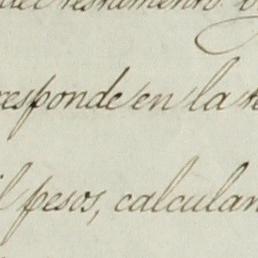 del testamento
responde en la
pesos, calculan